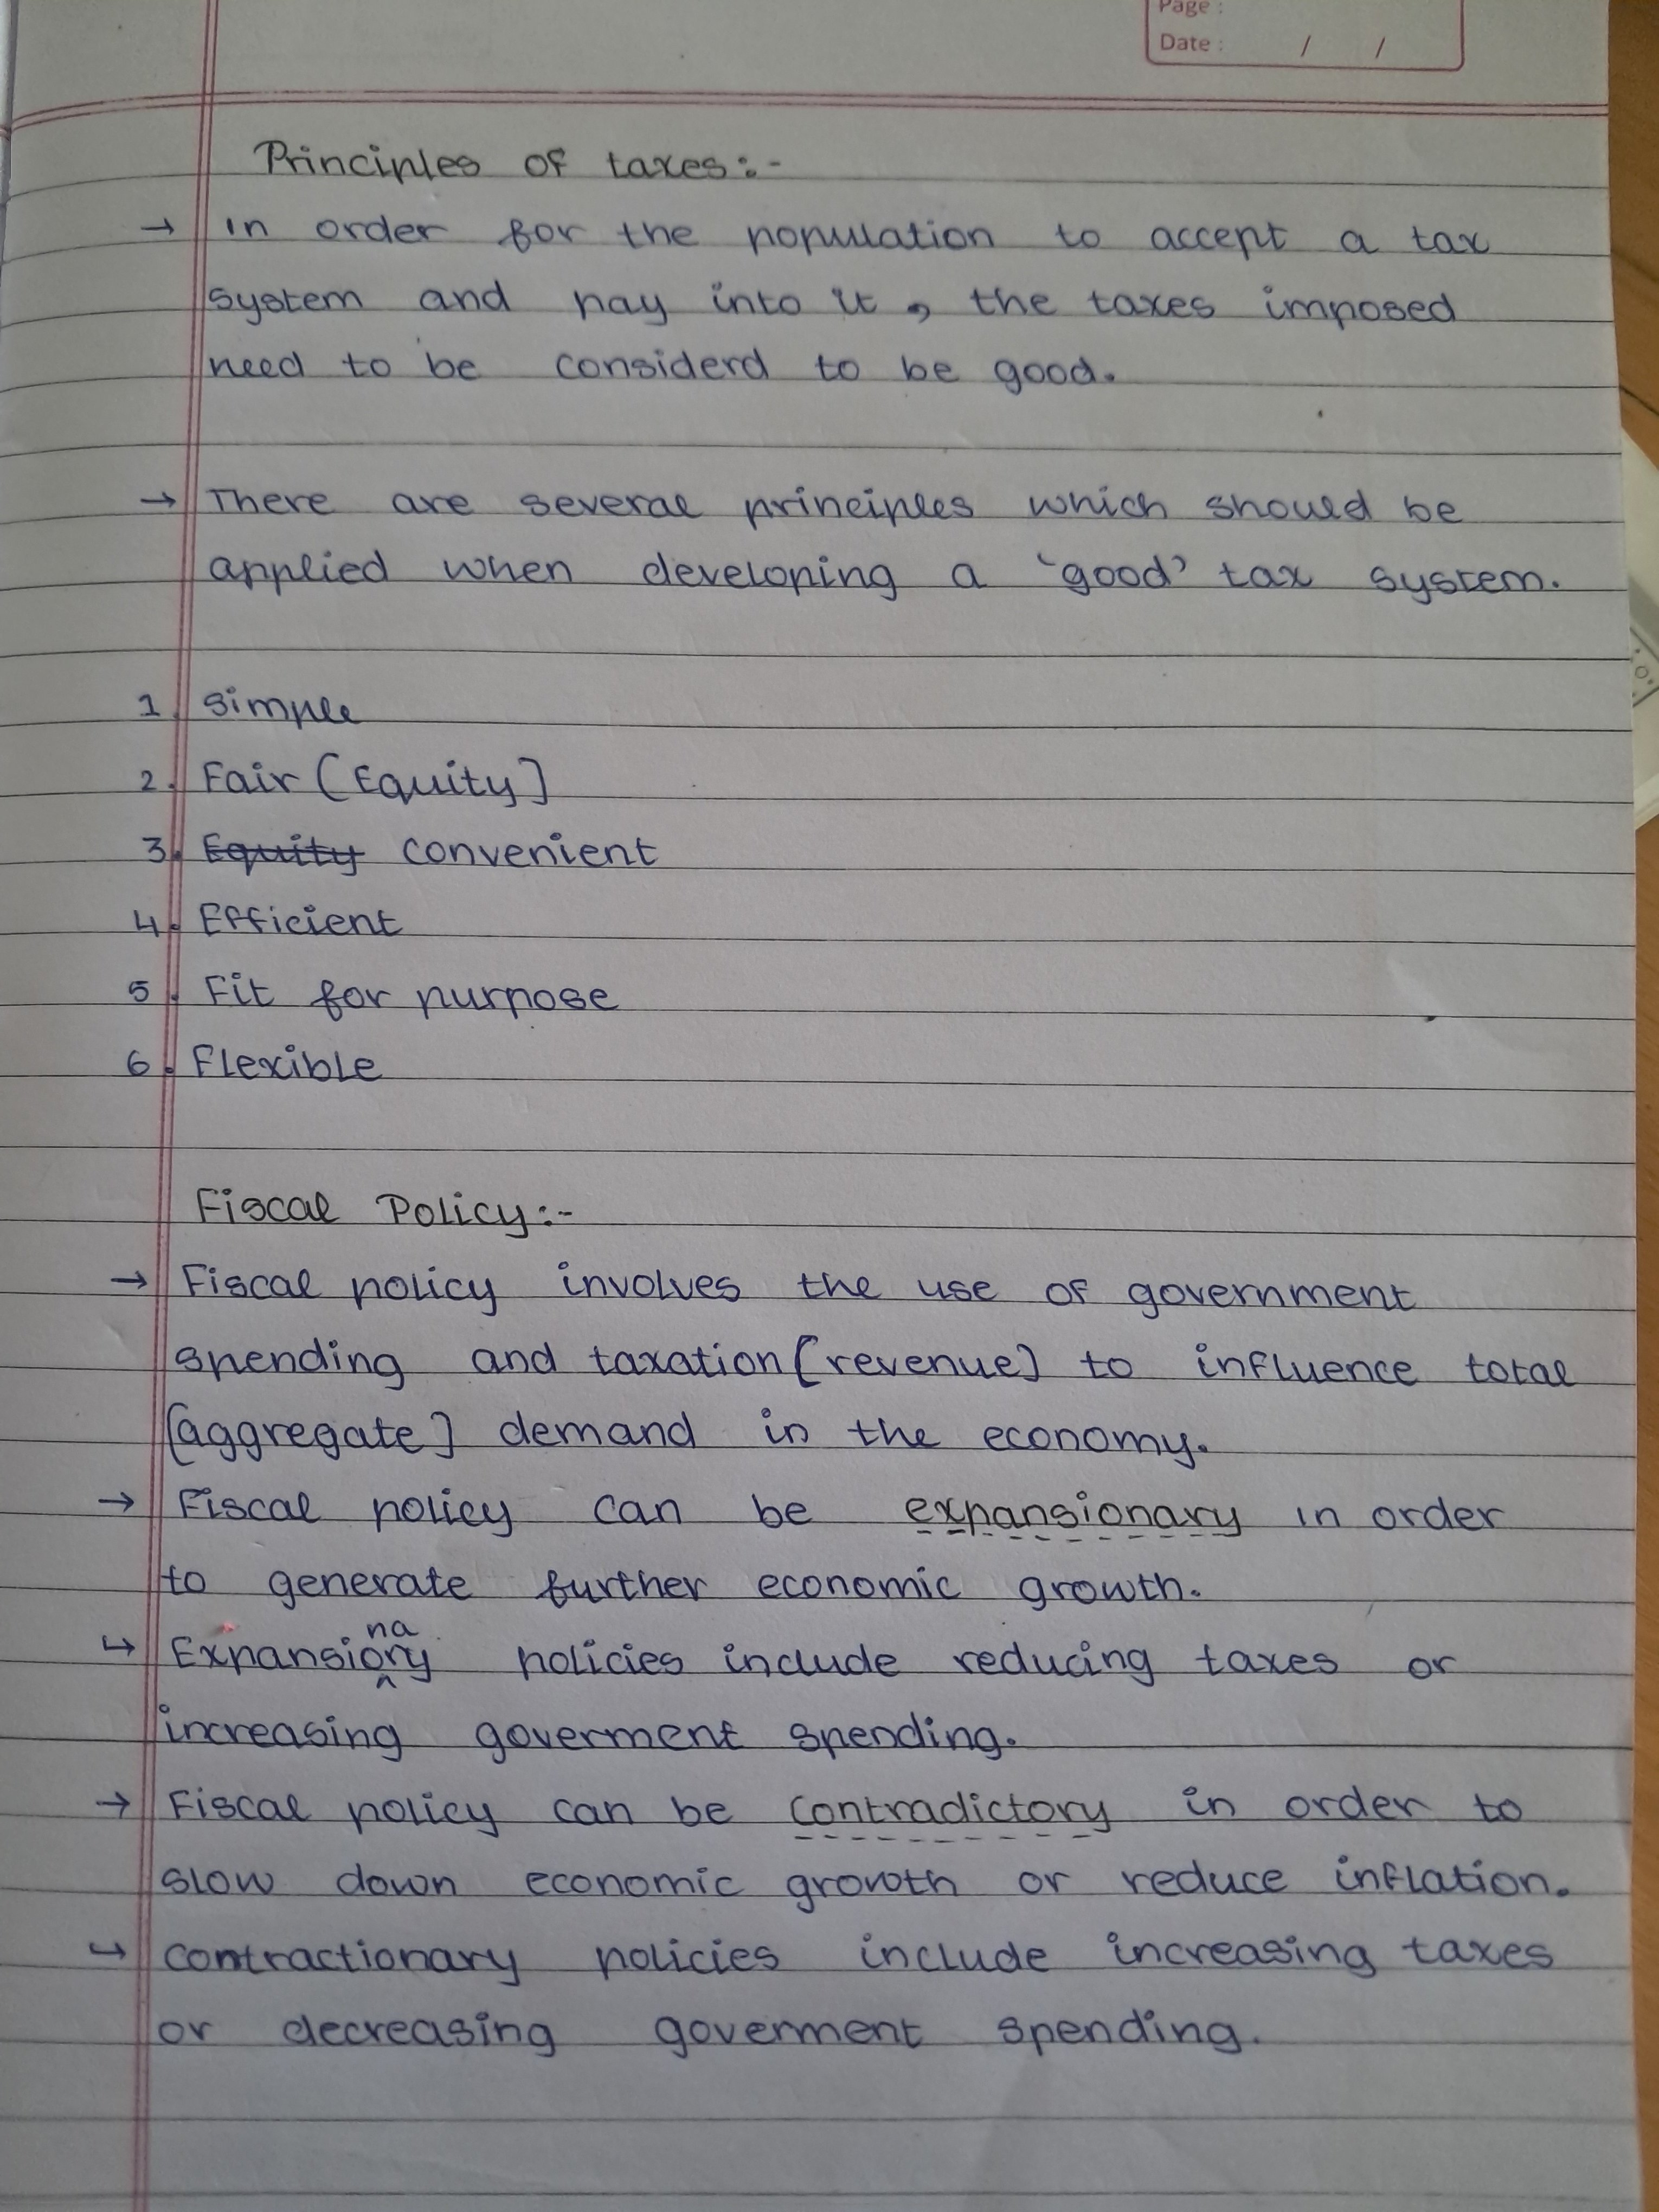 Page :
Date : / /
Principles of taxes:-
→ In order for the population to accept a tax
system and pay into it, the taxes imposed
need to be considerd to be good.
→ There are several principles which should be
applied when developing a 'good' tax system.
1. Simple
2. Fair [Equity]
3. ~~Equity~~ convenient
4. Efficient
5. Fit for purpose
6. Flexible
Fiscal Policy:-
→ Fiscal policy involves the use of government
spending and taxation [revenue] to influence total
[aggregate] demand in the economy.
→ Fiscal policy can be expansionary in order
to generate further economic growth.
↳ Expansionary policies include reducing taxes or
increasing goverment spending.
→ Fiscal policy can be contradictory in order to
slow down economic growth or reduce inflation.
↳ contractionary policies include increasing taxes
or decreasing goverment spending.